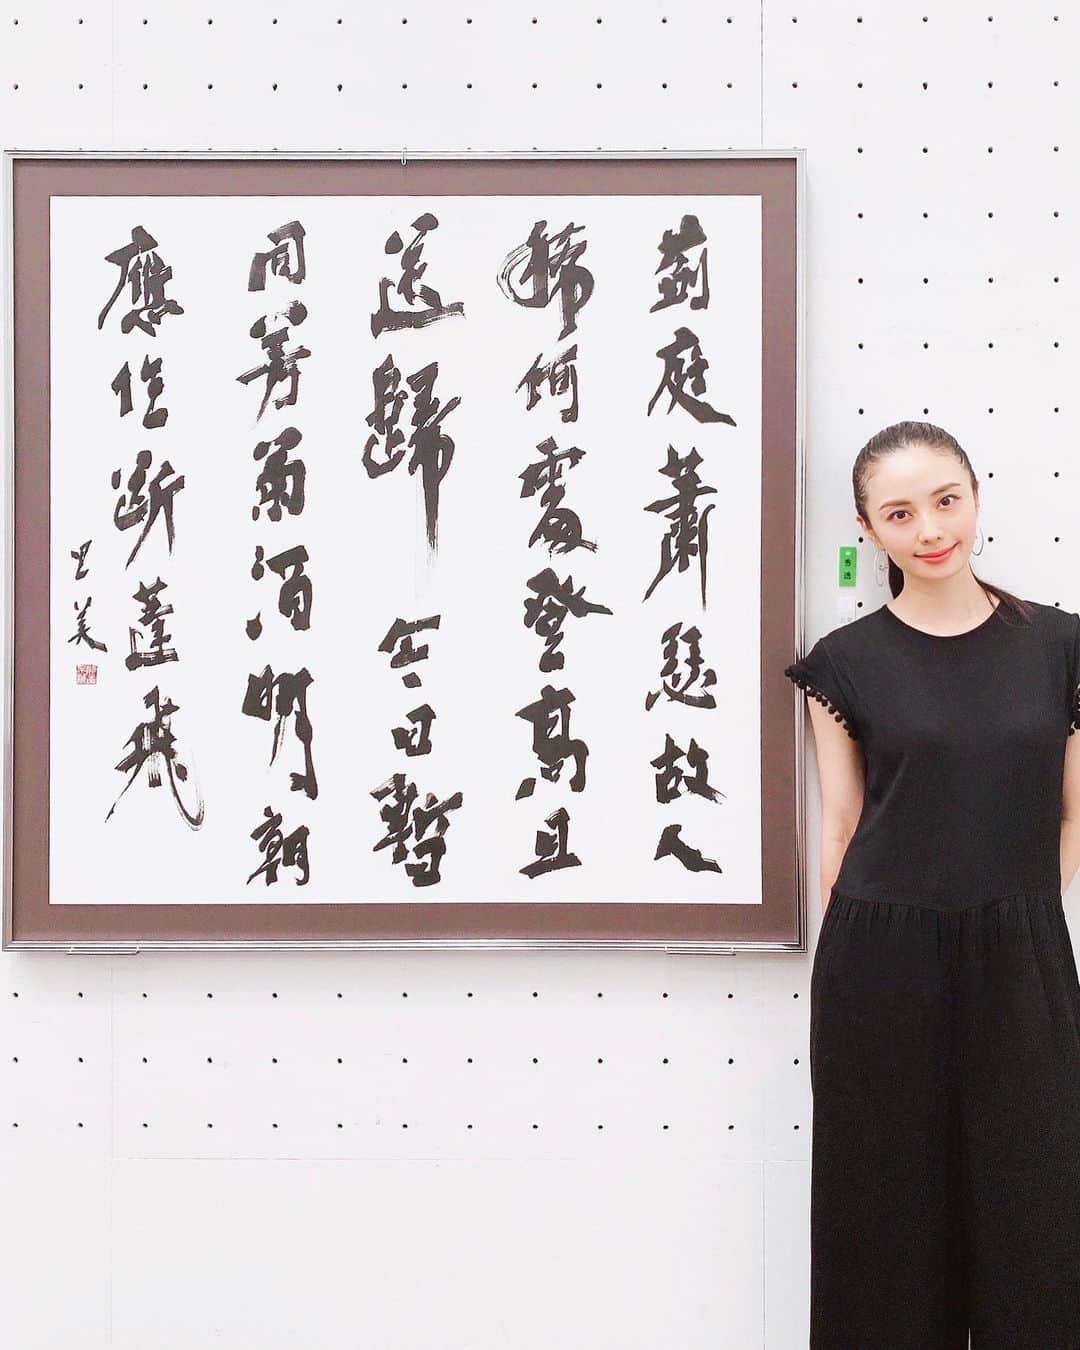 薊庭蕭瑟故人
稀何處登高且
送歸今日暫
同芳菊酒明朝
應作斷蓬飛
美
秀逸